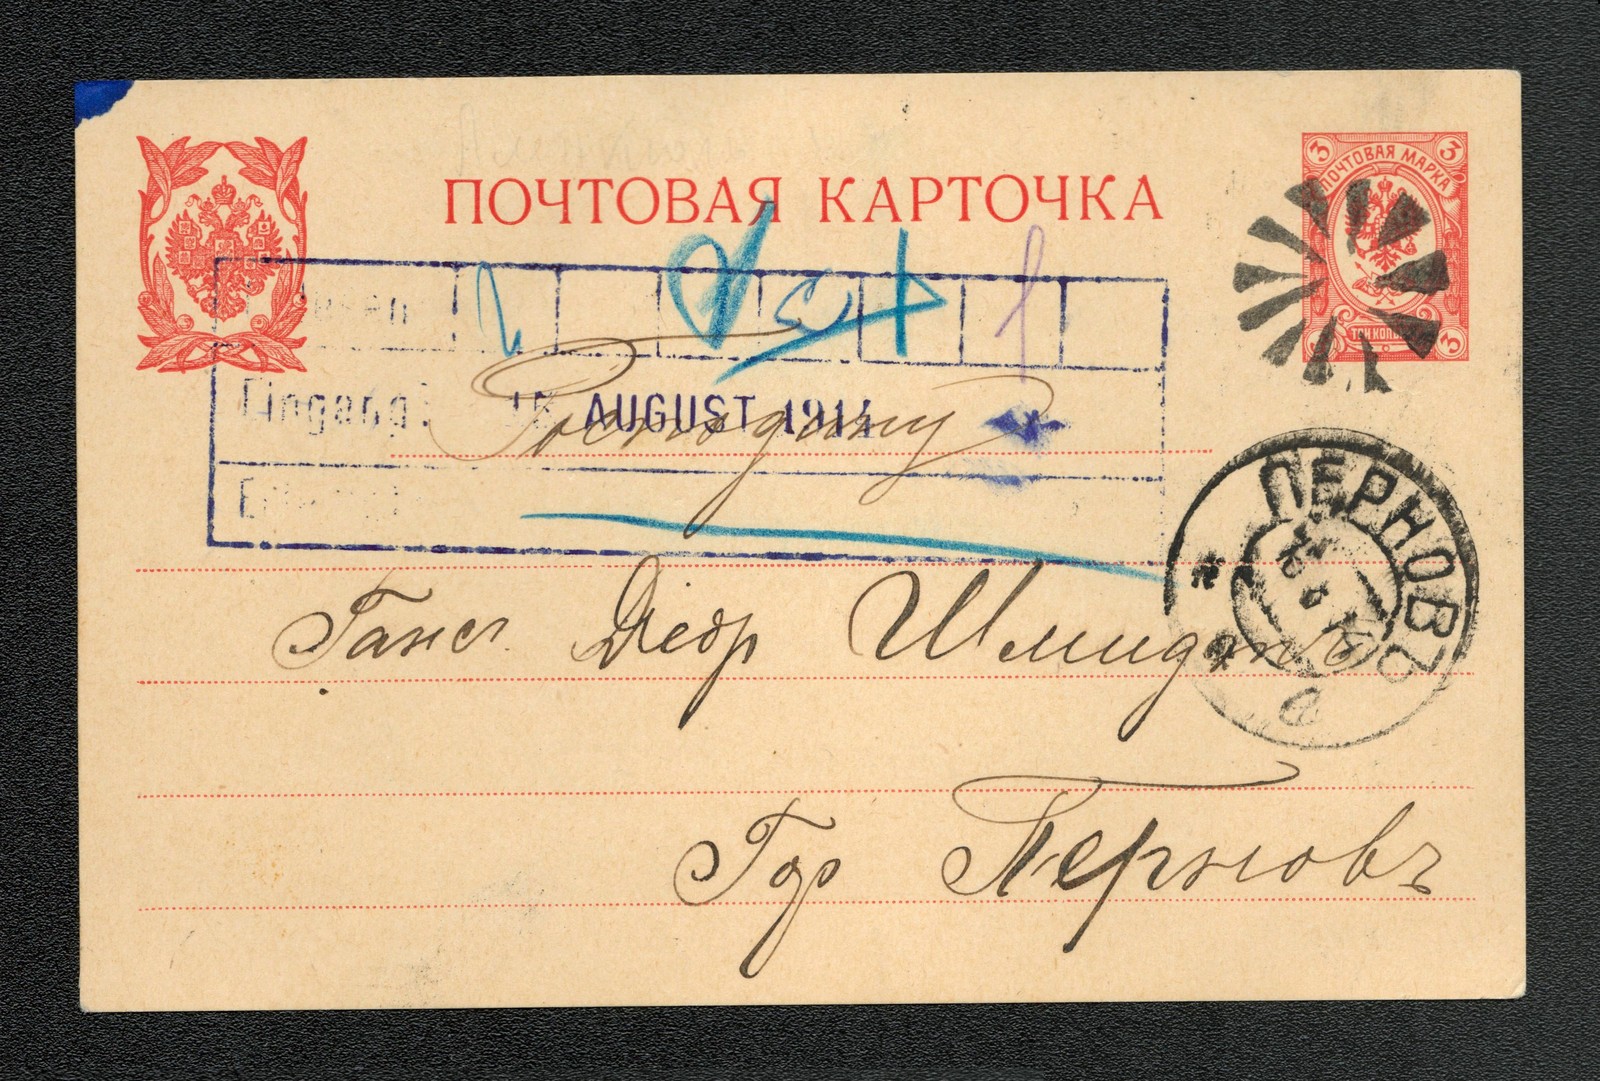 ПОЧТОВАЯ КАРТОЧКА
3 ПОЧТОВАЯ МАРКА 3
ТРИ КОП
3
Eingang: 15 AUGUST 1914
Господину
ПЕРНОВЪ
Ганс. Диедр Шмидтъ
Гор Перновъ